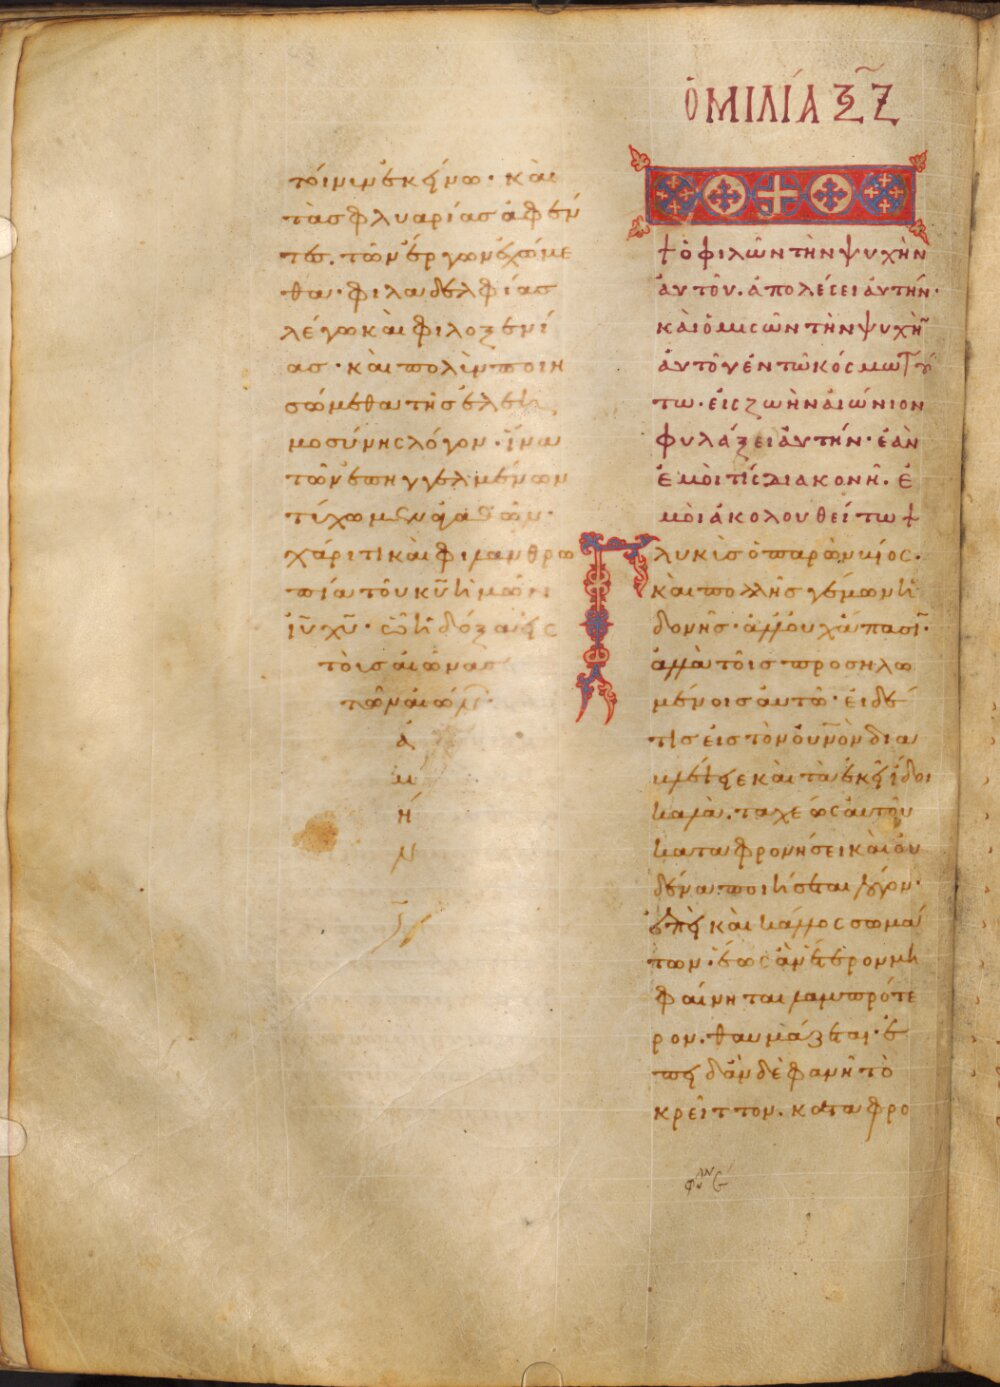 τοίνυν ἐκείνω· καὶ
τὰς φλυαρίας ἀφέν
τες. τῶν ἔργων ἐχώμε
θα· φιλαδελφίας
λέγω καὶ φιλοξενί
ας· καὶ πολὺν ποιη
σώμεθα τῆς ἐλεη
μοσύνης λόγον· ἵνα
τῶν ἐπηγγελμένων
τύχωμεν ἀγαθῶν·
χάριτι καὶ φιλανθρω
πία τοῦ κ̅υ̅ ἡμῶν
ι̅υ̅ χ̅υ̅· ὧ ἡ δόξα εἰς
τοὺς αἰῶνας
τῶν αἰώ
ἀ
μ
ή
ν
ὉΜΙΛΊΑ ΞΖ
+ ὁ φιλῶν τὴν ψυχὴν
ἀυτοῦ. ἀπολέσει ἀυτήν·
καὶ ὁ μισῶν τὴν ψυχὴ̅
ἀυτοῦ ἐν τῶ κόσμω τού
τω· εἰς ζωὴν αἰώνιον
φυλάξει ἀυτήν· ἐὰν
ἐμοὶ τίς διακονῆ. ἐ
μοὶ ἀκολουθείτω +
Γλυκὺς ὁ παρὼν βίος·
καὶ πολλῆς γέμων ἡ
δονῆς· ἀλλ' οὐχ ἅπασι̅·
ἀλλὰ τοῖς προσηλω
μένοις ἀυτῶ· εἰ δέ
τις εἰς τὸν οὐ̅νὸν δια
βλέψειε καὶ τὰ ἐκεῖ ἴδοι
καλὰ. ταχέως ἀυτοῦ
καταφρονήσει καὶ οὐ
δένα ποιήσεται λόγον·
ἐπεὶ καὶ κάλλος σωμά
των· ἕως ἂν ἕτερον μὴ
φαίνηται λαμπρότε
ρον. θαυμάζεται· ἐ
πειδὰν δὲ φανῆ τὸ
κρεῖττον. καταφρο